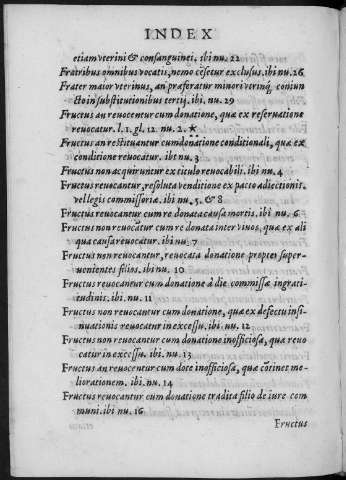 INDEX
etiam vterini & consanguinei. ibi nu. 22
Fratribus omnibus vocatis, nemo cẽsetur exclusus. ibi nu. 26
Frater maior vterinus, an præferatur minori vtrinq; coniun
cto in substitutionibus tertij. ibi. nu. 29
Fructus an reuocentur cum donatione, quæ ex reseruatione
reuocatur. l. 1. gl. 12. nu. 2. *
Fructus an restituantur cum donatione conditionali, quæ ex
conditione reuocatur. ibi nu. 3
Fructus non acquiruntur ex titulo reuocabili. ibi nu. 4
Fructus reuocantur, resoluta venditione ex pacto adiectionis.
vel legis commissoriæ. ibi nu. 5. & 8
Fructus reuocantur cum re donata causa mortis. ibi nu. 6
Fructus non reuocãtur cum re donata inter viuos, quæ ex ali
qua causa reuocatur. ibi nu. 7
Fructus non reuocantur, reuocata donatione propter super-
uenientes filios. ibi nu. 10
Fructus reuocantur cum donatione à die commissæ ingrati-
tudinis. ibi. nu. 11
Fructus non reuocantur cum donatione, quæ ex defectu insi
nuationis reuocatur in excessu. ibi. nu. 12
Fructus non reuocantur cum donatione inofficiosa, quæ reuo
catur in excessu. ibi nu. 13
Fructus an reuocentur cum dote inofficiosa, quæ cõtinet me-
liorationem. ibi. nu. 14
Fructus reuocantur cum donatione tradita filio de iure com
muni. ibi nu. 16
Fructus